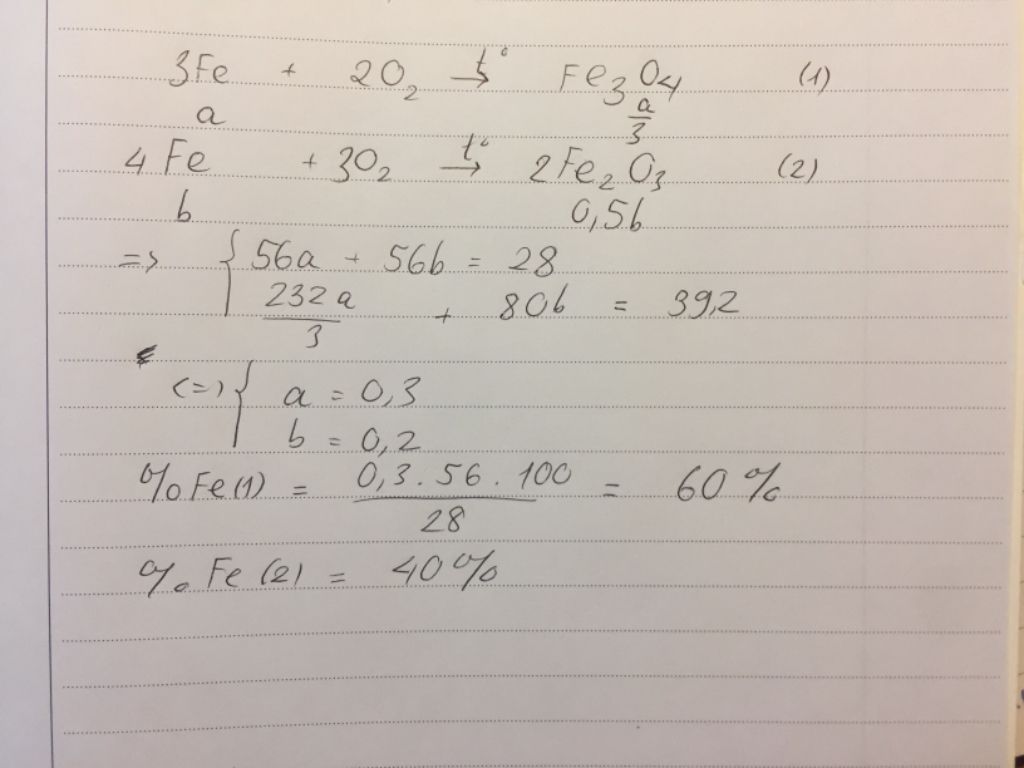 3Fe + 2O₂ →t° Fe₃O₄ (1)
a a/3
4Fe + 3O₂ →t° 2Fe₂O₃ (2)
b 0,5b
=> { 56a + 56b = 28
232a/3 + 80b = 39,2
<=> { a = 0,3
b = 0,2
%Fe(1) = 0,3.56.100/28 = 60%
%Fe(2) = 40%